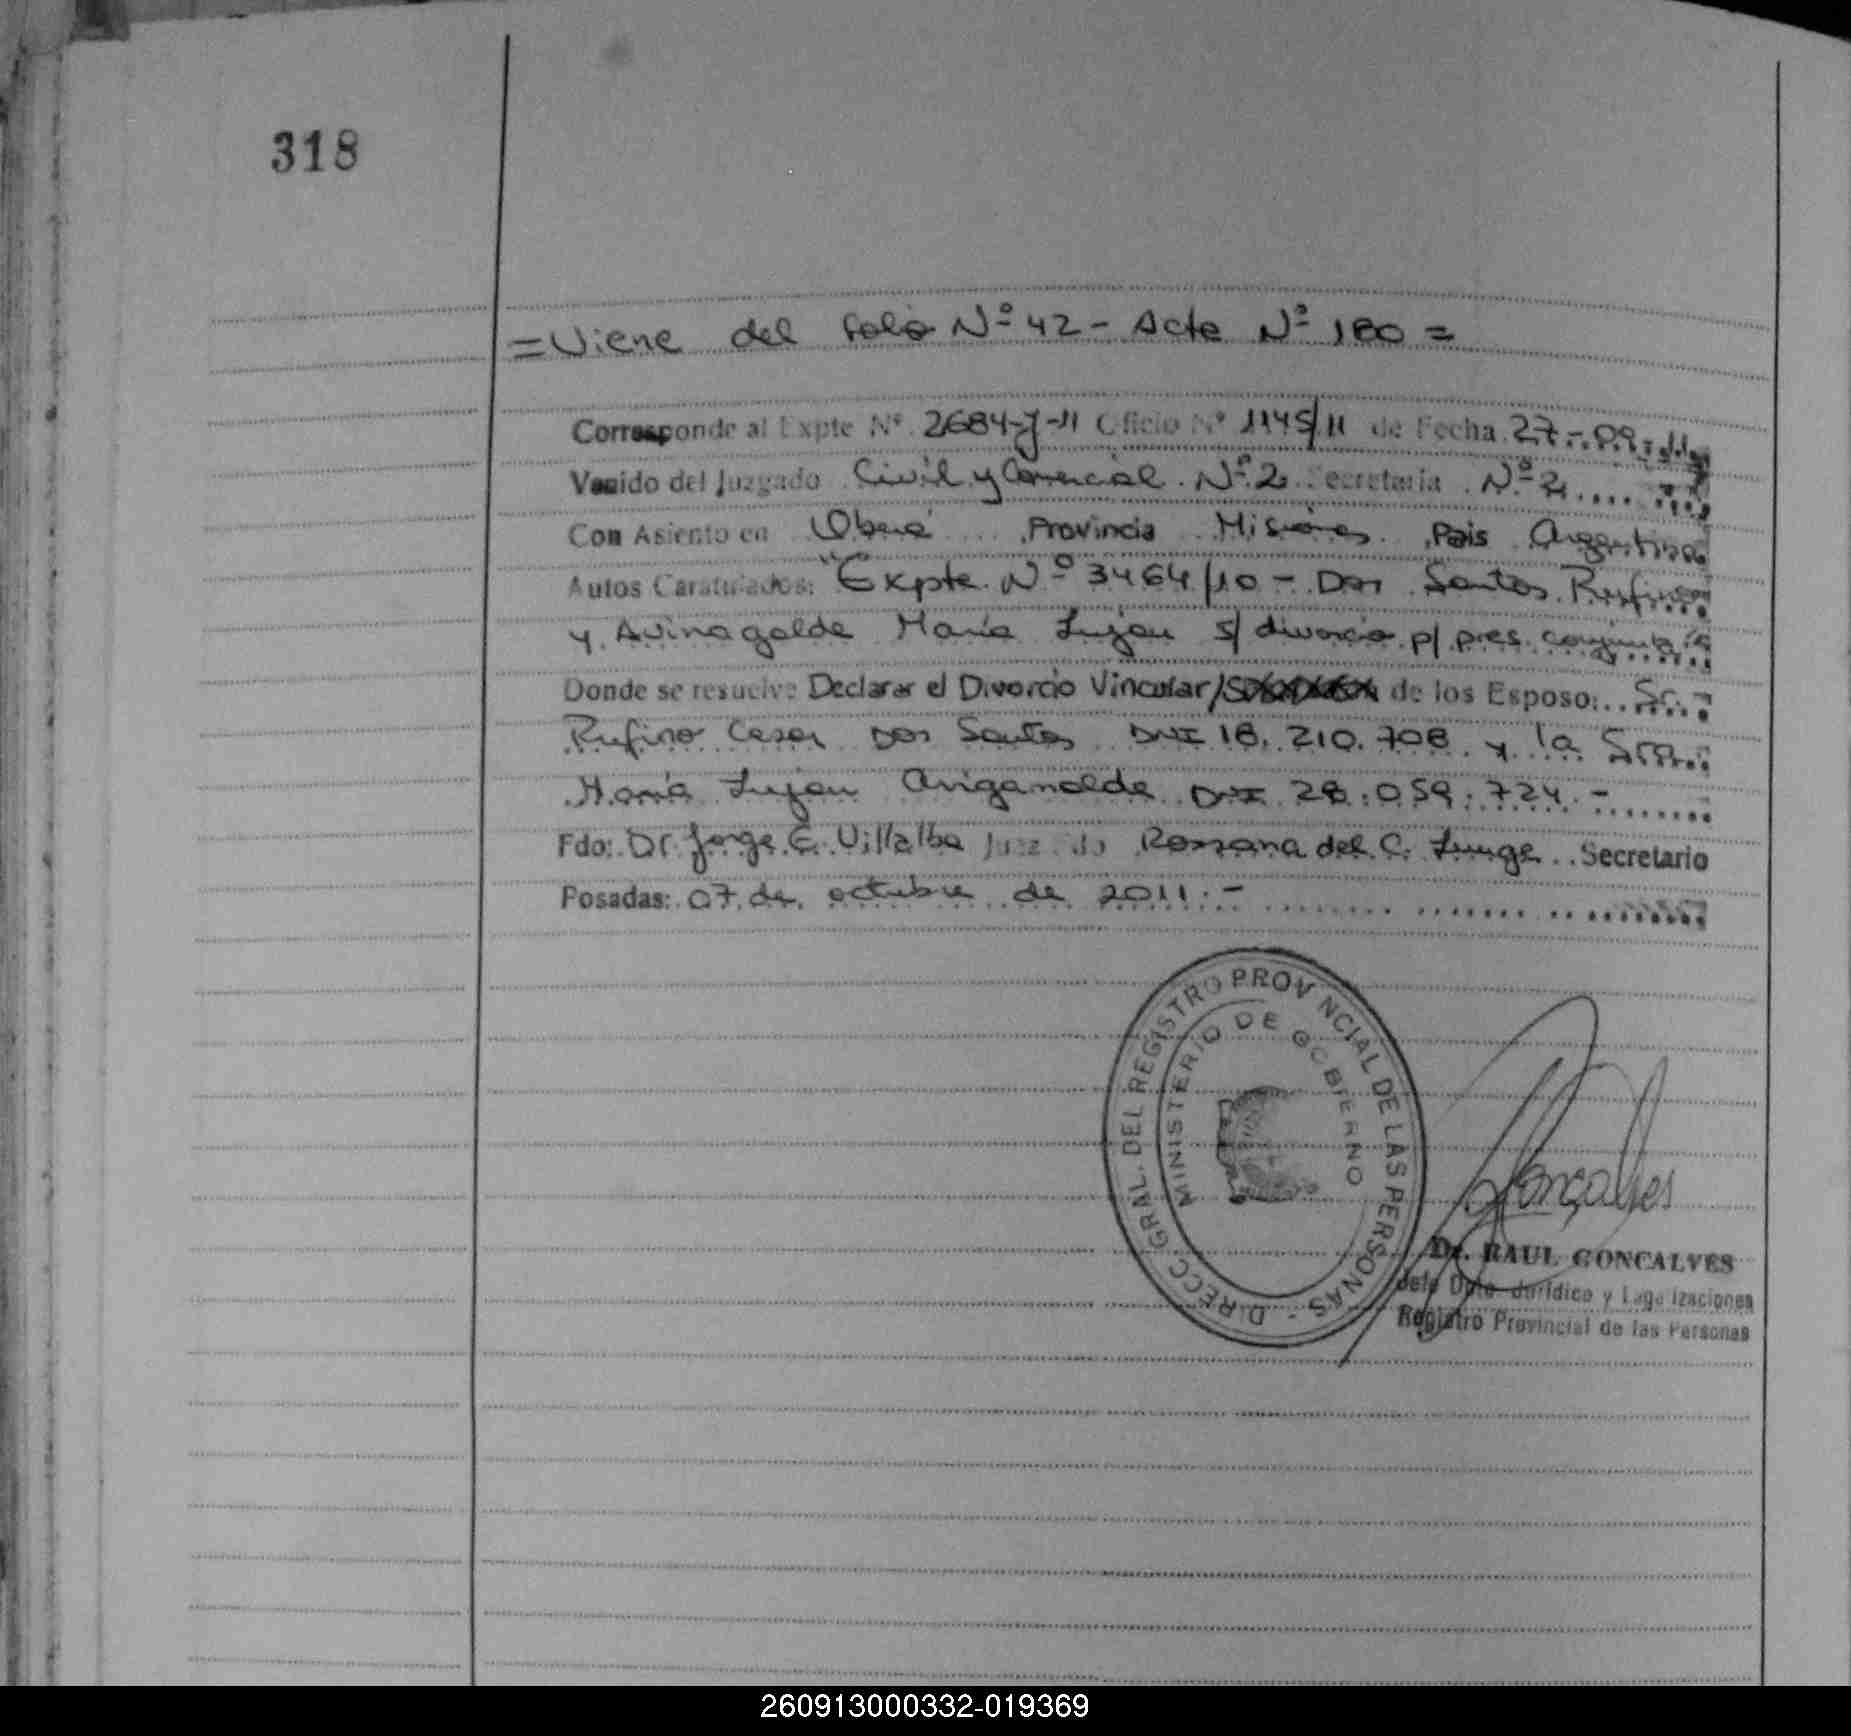 318
= Viene del folio Nº 42 - Acta Nº 180 =
Corresponde al Expte Nº 2684-J-11 Oficio Nº 1145/11 de Fecha 27-09-11
Venido del Juzgado Civil y Comercial Nº 2 Secretaria Nº 2
Con Asiento en Oberá Provincia Misiones País Argentina
Autos Caratulados: "Expte. Nº 3464/10 - Dos Santos Rufino
y Avinagalde María Lujan s/ divorcio p/ pres. conjunta"
Donde se resuelve Declarar el Divorcio Vincular/ de los Esposo: Sr.
Rufino Cesar Dos Santos DNI 18.210.708 y la Sra.
María Lujan Aviganalde DNI 28.059.724.-
Fdo: Dr. Jorge E. Villalba Juzgado Rossana del C. Secretario
Posadas: 07 de octubre de 2011.-
DIRECC GRAL. DEL REGISTRO PROVINCIAL DE LAS PERSONAS -
MINISTERIO DE GOBIERNO
Gonçalves
Dr. RAUL GONCALVES
Jefe Dpto. Jurídico y Legalizaciones
Registro Provincial de las Personas
260913000332-019369